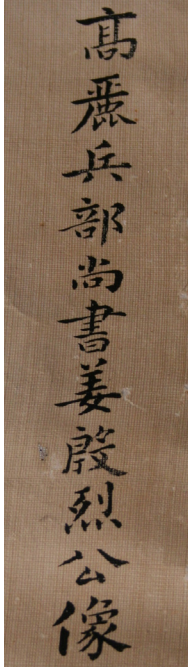 高麗兵部尚書姜殷烈公像